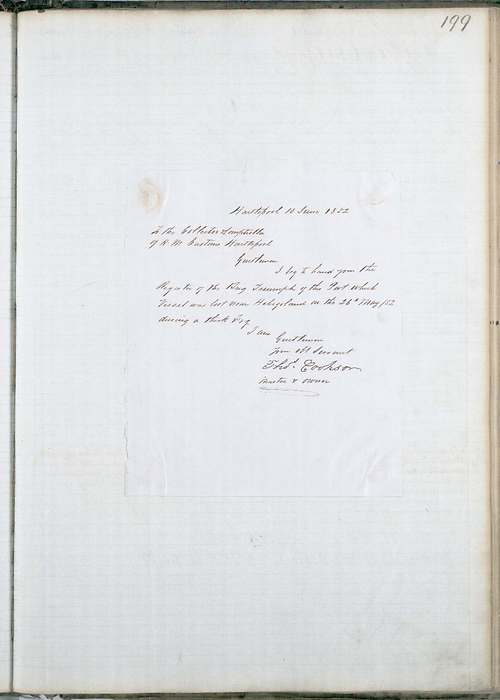 199
Hartlepool 10 June 1852
To the Collector & Comptroller
of H. M. Customs Hartlepool
Gentlemen
I beg to hand you the
Register of the Brig Triumph of this Port which
Vessel was lost near Heligoland on the 26th May /52
during a thick Fog
I am
Gentlemen
Your obt Servant
Thos. Cookson
Master & owner